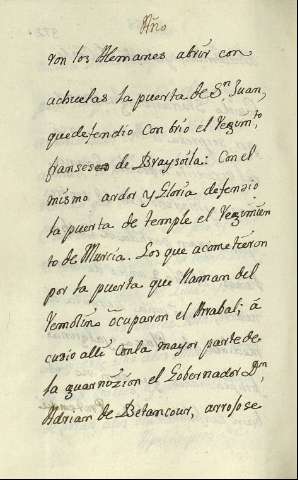 Año
ron los Alemanes abrir con
achuelas la puerta de Sn Juan,
que defendio con brio el Regimto
franses de Braysoila: Con el
mismo ardor y Gloria defendio
la puerta de temple el Regimien
to de Murcia. Los que acometieron
por la puerta que llaman del
Remolino ocuparon el Arrabal; á
cudio alli con la mayor parte de
la guarnizion el Gobernador Dn
Adrian de Betancour, arrojose